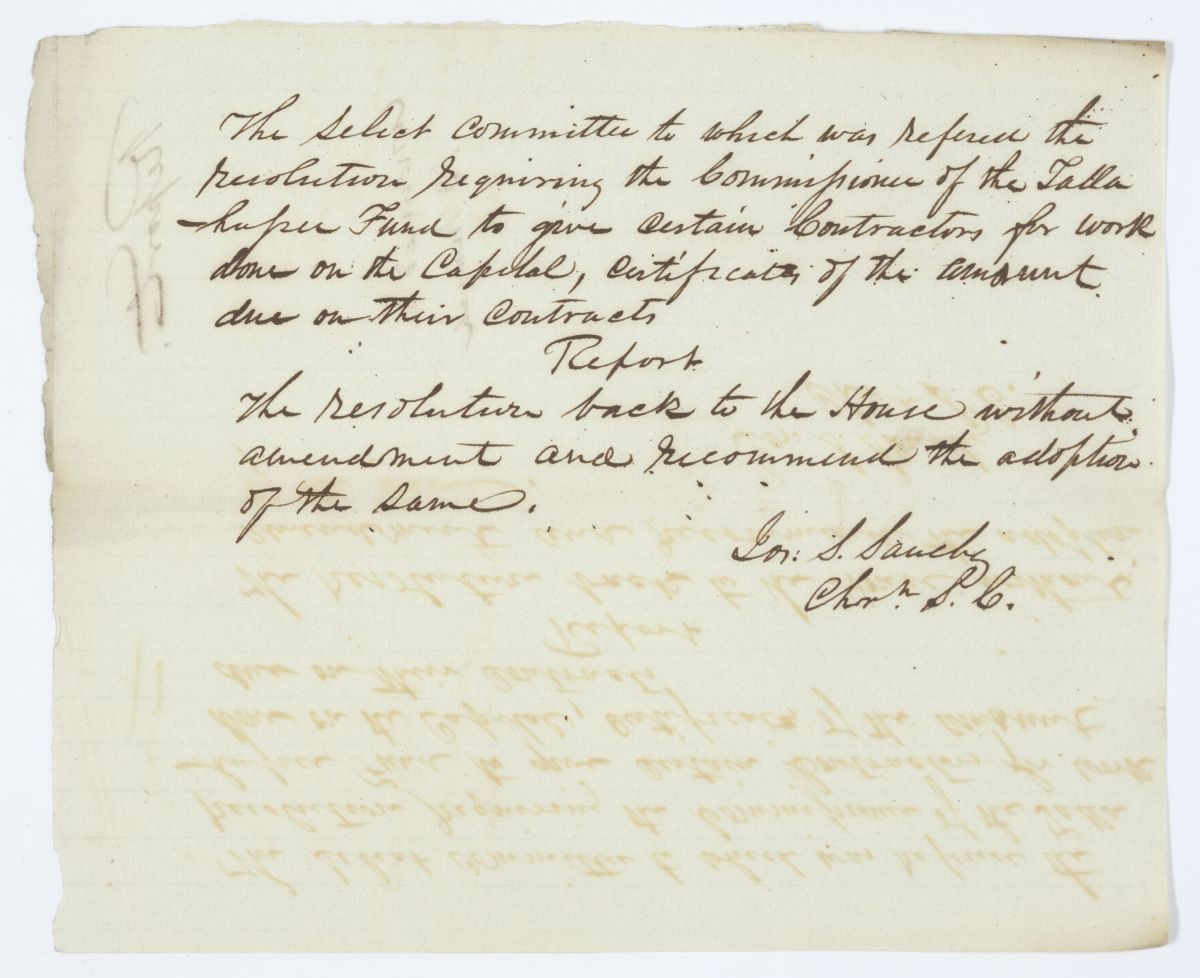 The select committee to which was refered the
resolution requiring the Commissioner of the Talla
-hassee Fund to give certain Contractors for work
done on the Capital, certificates of the amount
due on their contracts
Report
The resolution back to the House without
amendment and recommend the adoption
of the same.
Jos: S. Sanchez
Chrn. S. C.